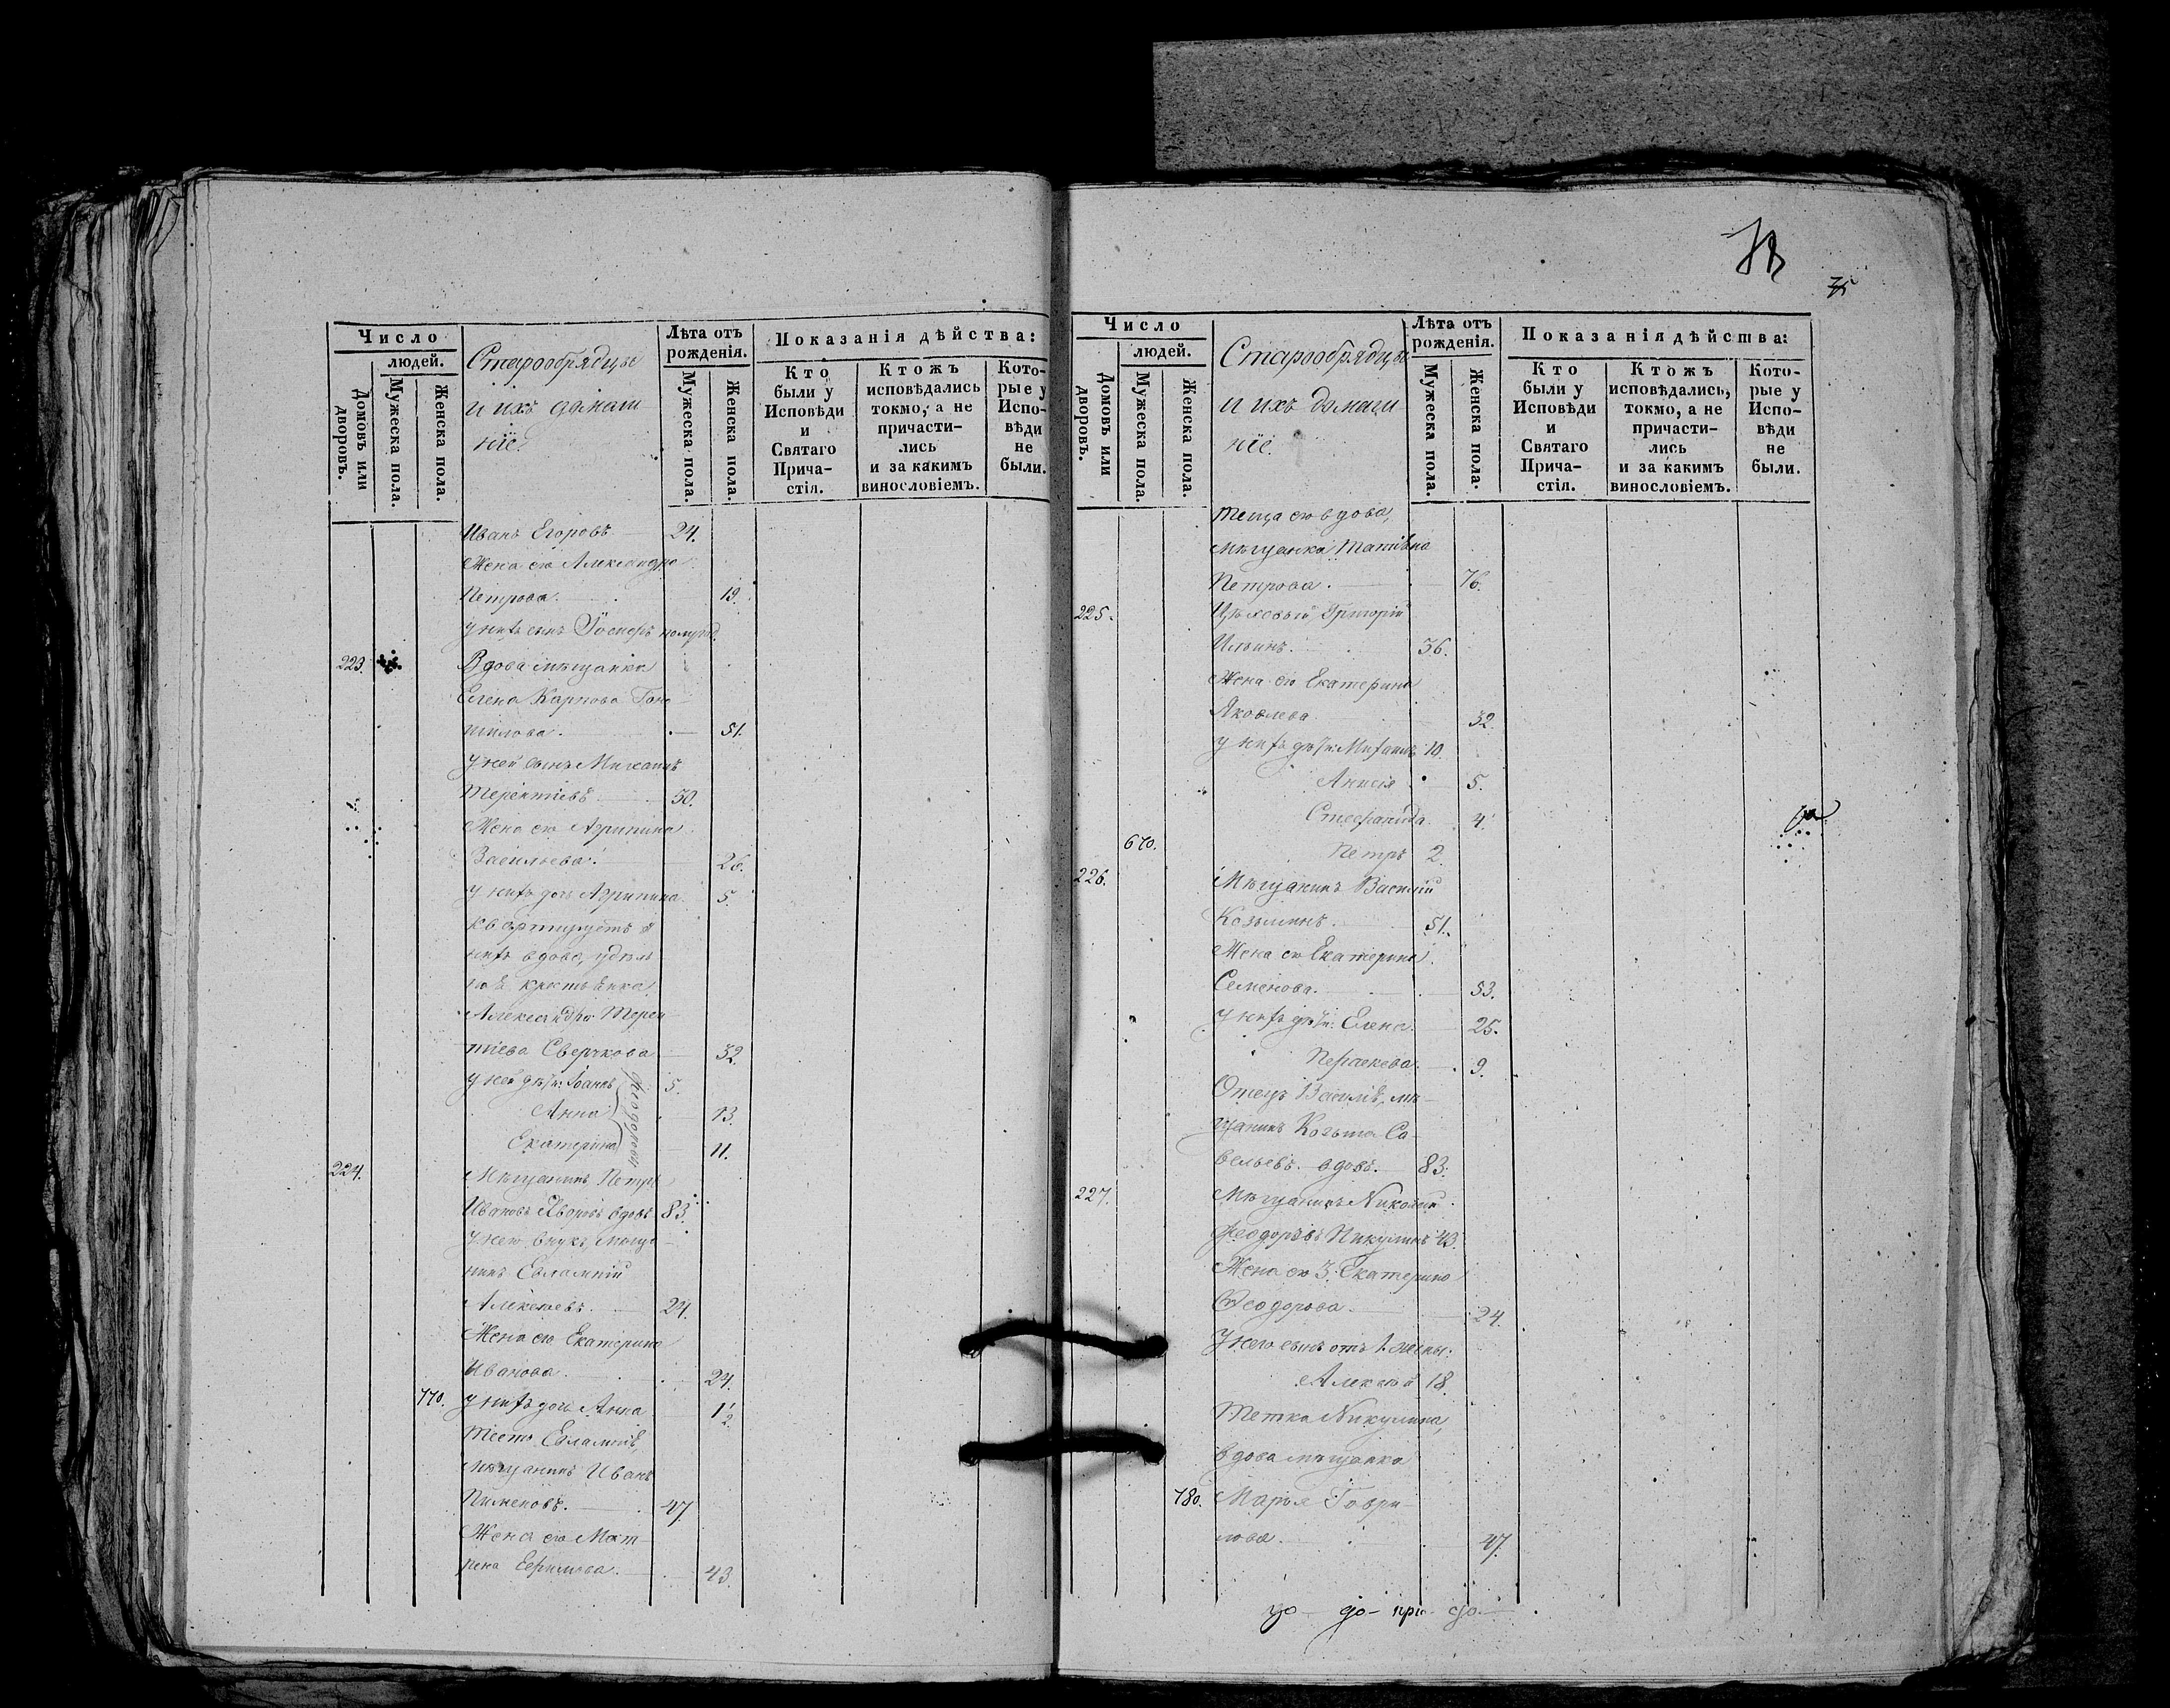 Число
людей.
Домовъ или дворовъ.
Мужеска пола.
Женска пола.
Старообрядцы
и ихъ домаш-
нiе.
Лѣта отъ
рожденія.
Мужеска пола.
Женска пола.
Показанія дѣйства:
Кто
были у
Исповѣди
и
Святаго
Прича-
стія.
Ктожъ
исповѣдались
токмо, а не
причасти-
лись
и за какимъ
винословіемъ.
Кото-
рые у
Испо-
вѣди
не
были.
Иванъ Егоровъ 24.
Жена его Александра
Петрова. 19.
у нихъ сынъ полуго.
223. Вдова мѣщанка
Елена Карпова
51.
У ней сынъ Михаилъ
Терентіевъ 30.
Жена его Агрипина
Васильева. 26.
У нихъ дочь Агрипина 5.
квартируетъ у
нихъ вдова, удѣль
ная крестьянка
Александра Терен
тіева Сверчкова 32.
у ней дѣти: Іоаннъ 5.
Анна 13.
Екатерина 11.
Ѳеодоровы
224. Мѣщанинъ Петръ
Ивановъ вдовъ 83.
У него внукъ, мѣща-
нинъ Евлампій
Алексѣевъ. 24.
Жена его Екатерина
Иванова. 24.
770. У нихъ дочь Анна 1 1/2
Тесть Евлампія,
мѣщанинъ Иванъ
Пименовъ. 47.
Жена его Мат-
рена Ефимова. 43.
75
Число
людей.
Домовъ или дворовъ.
Мужеска пола.
Женска пола.
Старообрядцы
и ихъ домаш-
нiе.
Лѣта отъ
рожденія.
Мужеска пола.
Женска пола.
Показанія дѣйства:
Кто
были у
Исповѣди
и
Святаго
Прича-
стія.
Ктожъ
исповѣдались,
токмо, а не
причасти-
лись
и за какимъ
винословіемъ.
Кото-
рые у
Испо-
вѣди
не
были.
Теща его вдова,
мѣщанка Татіана
Петрова. 76.
225. Цѣховый Григорій
Ильинъ. 36.
Жена его Екатерина
Яковлева. 32.
У нихъ дѣти: Михаилъ 10.
Анисія 5.
Стефанида 4.
670. Петръ 2.
226. Мѣщанинъ Василій
Козьминъ. 51.
Жена его Екатерина
Семенова. 53.
У нихъ дѣти: Елена. 25.
Параскева. 9.
Отецъ Василія, мѣ-
щанинъ Козьма Са-
вельевъ. вдовъ. 83.
227. Мѣщанинъ Николай
Ѳеодоровъ Никулинъ 43.
Жена его 3. Екатерина
Ѳеодорова. 24.
У него сынъ отъ 1. жены:
Алексѣй 18.
Тетка Никулина,
вдова мѣщанка
780. Марья Гаври-
лова. 47.